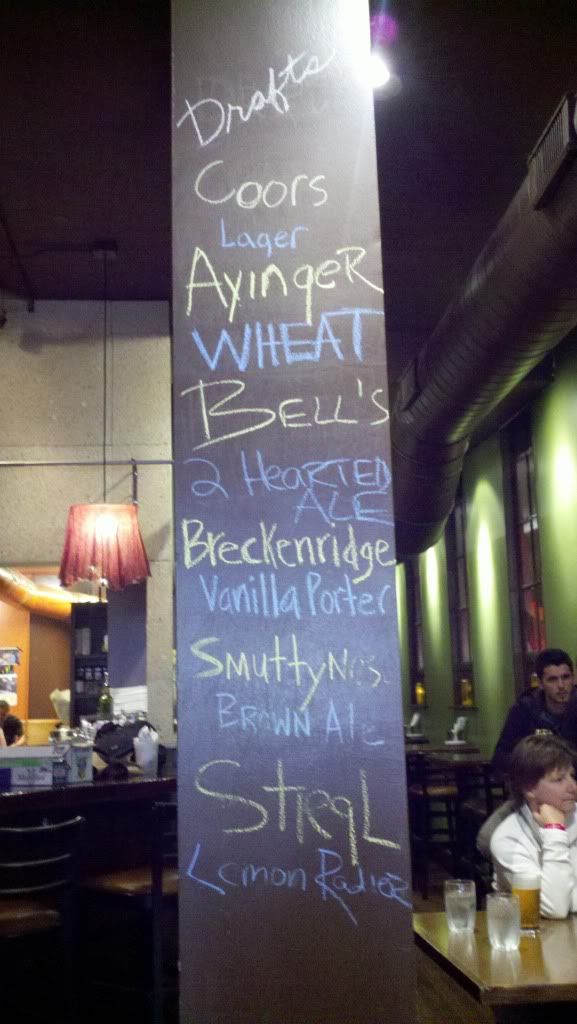 Drafts
Coors
Lager
Ayinger
WHEAT
BELL'S
2 HEARTED
ALE
Breckenridge
Vanilla Porter
SMUTTYNOS
BROWN ALE
STIEGL
Lemon Radler